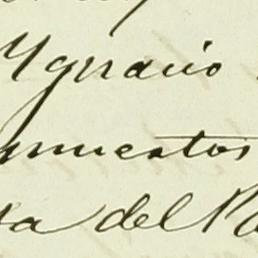 Ygnacio
puestos
sa del Pa